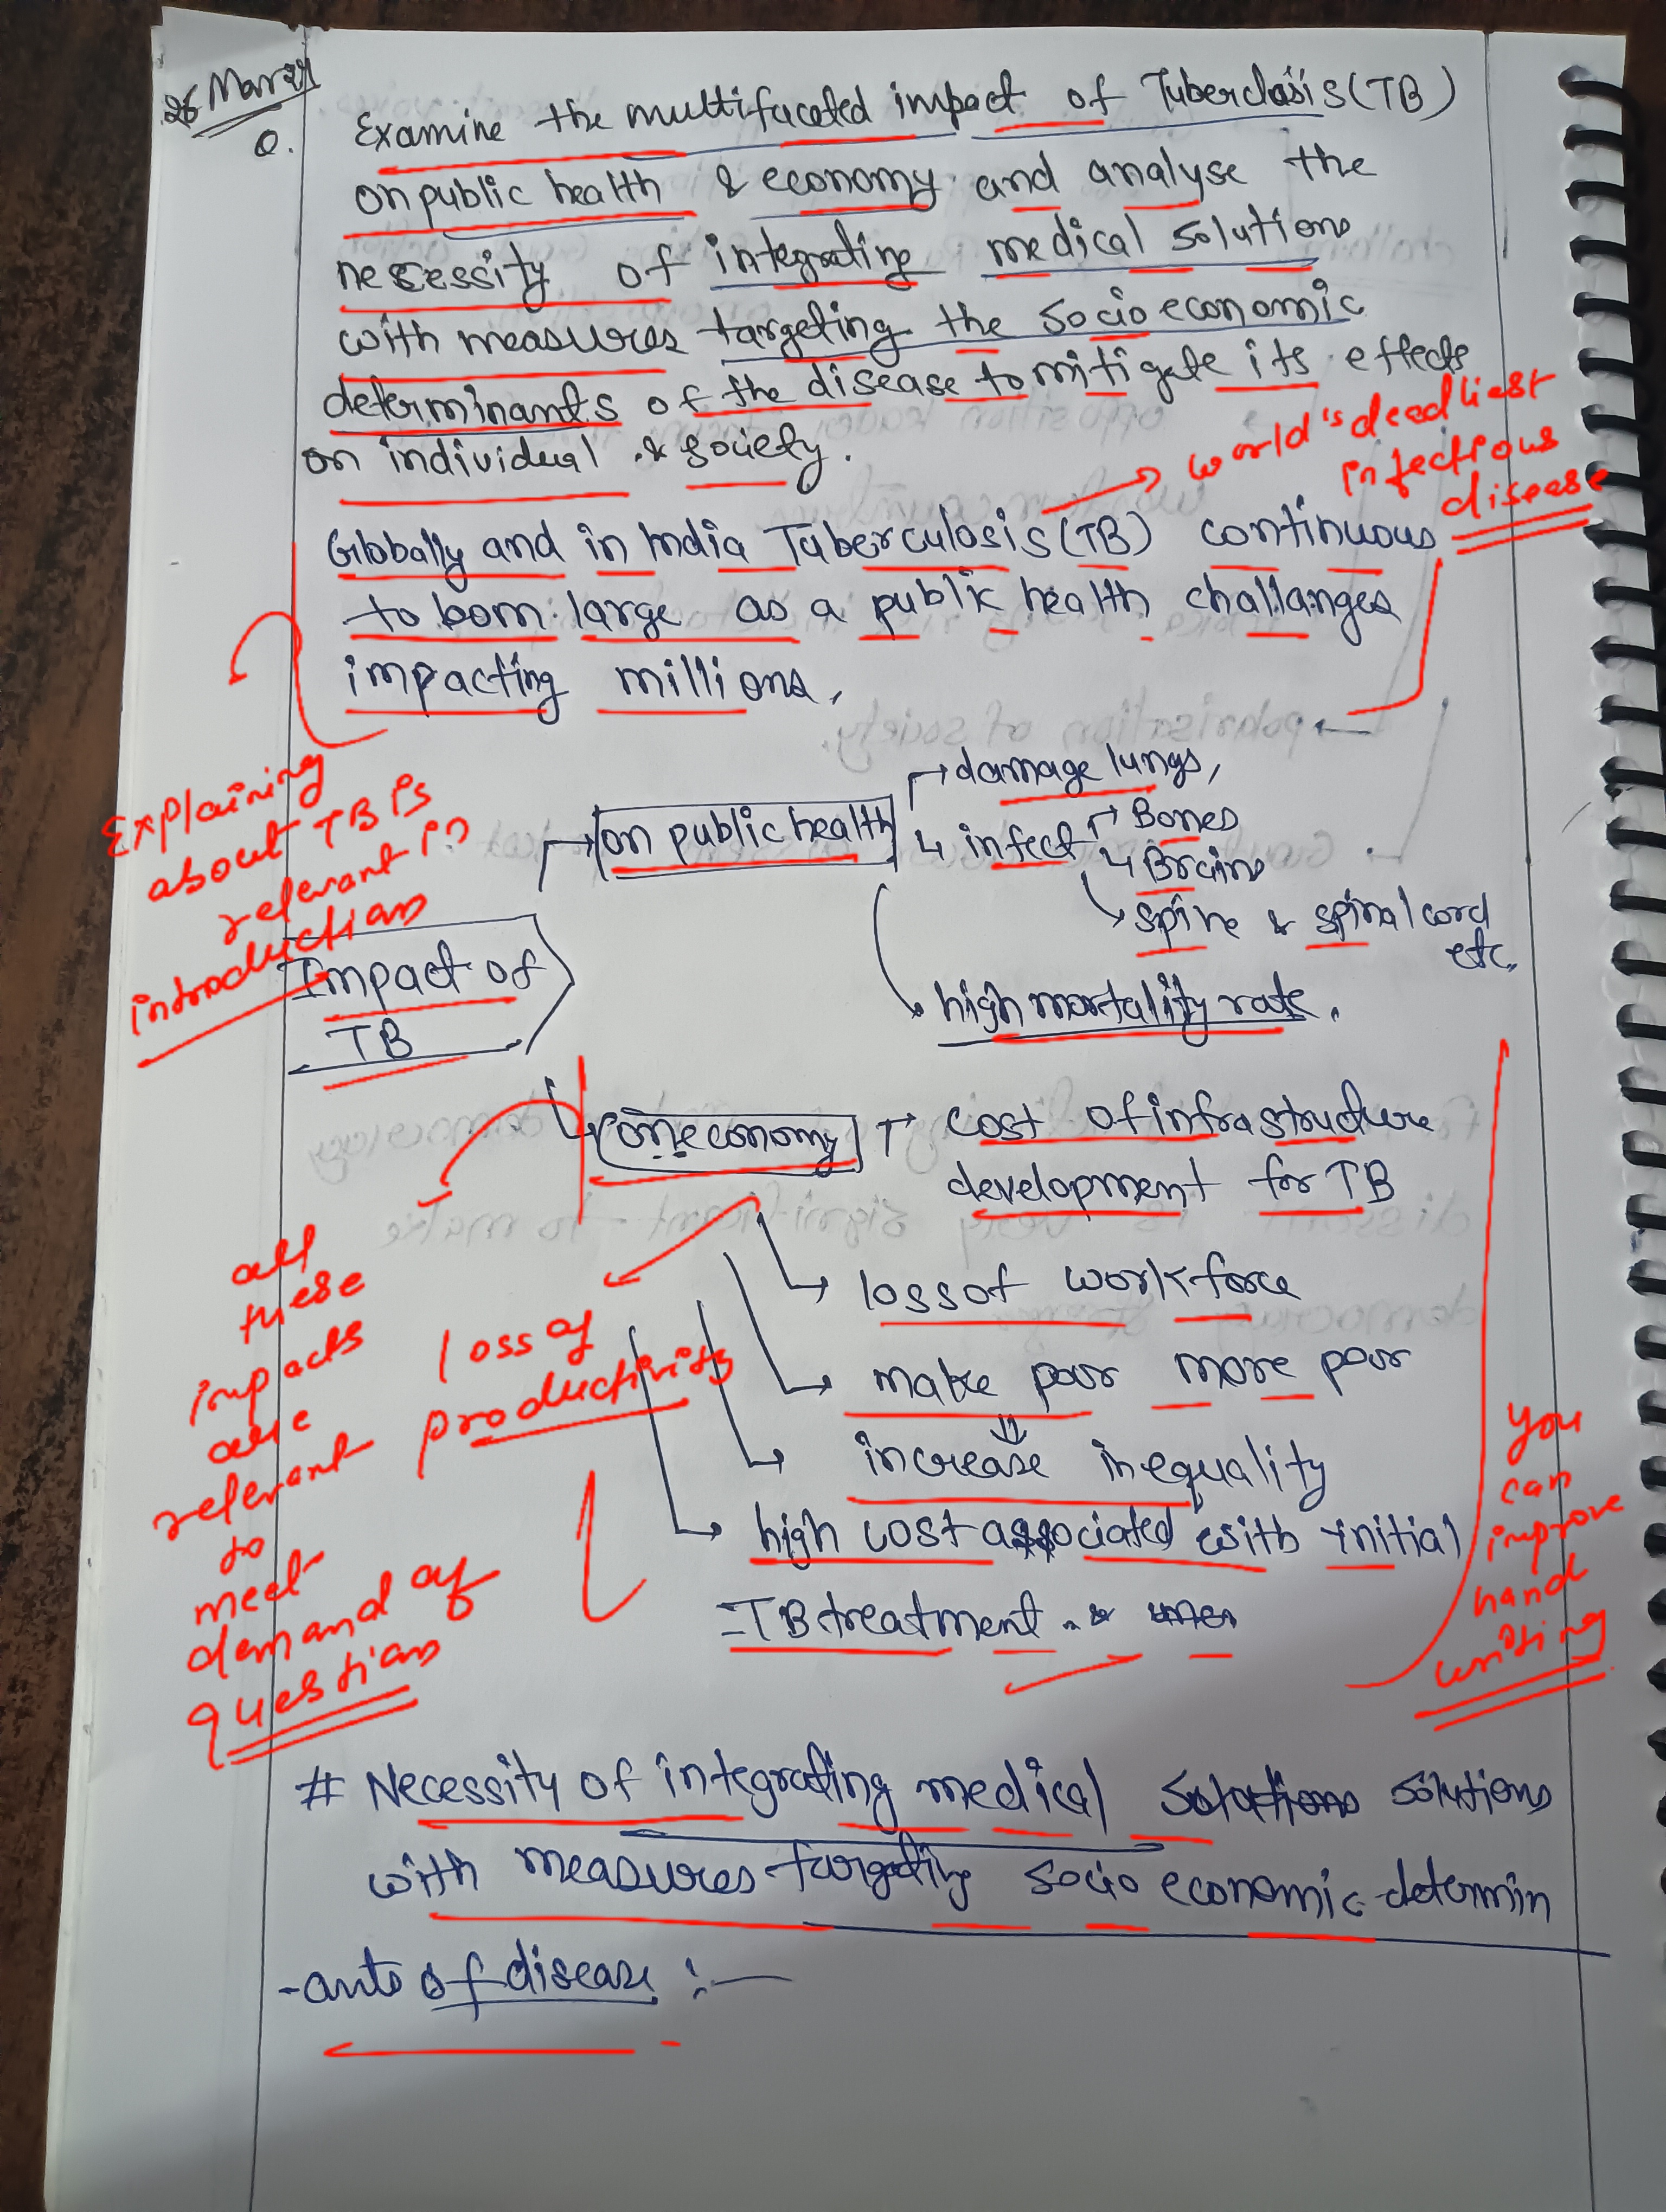 26 Mar 24
Q. Examine the multifaceted impact of Tuberclosis (TB)
on public health & economy and analyse the
necessity of integrating medical solutions
with measures targeting the socio economic
determinants of the disease to mitigate its effects
on individual & society.
→ world's deadliest
infectious
disease
Globally and in India Tuberculosis (TB) continuous
to bom large as a public health challanges
impacting millions,
Explaining
about TB is
relevant in
introduction
Impact of
TB
→ on public health
→ damage lungs,
↳ infect → Bones
↳ Brains
↳ spine & spinal cord
etc.
↳ high mortality rate.
↳ on economy → cost of infrastructure
development for TB
↳ loss of workforce
↳ make poor more poor
⇓
↳ increase inequality
↳ high cost associated with initial
- TB treatment . &
loss of
productivity
all
these
impacts
are
relevant
to
meet
demand of
question
You
can
improve
hand
writing
# Necessity of integrating medical solutions solutions
with measures targeting socio economic determin
-ants of disease :—